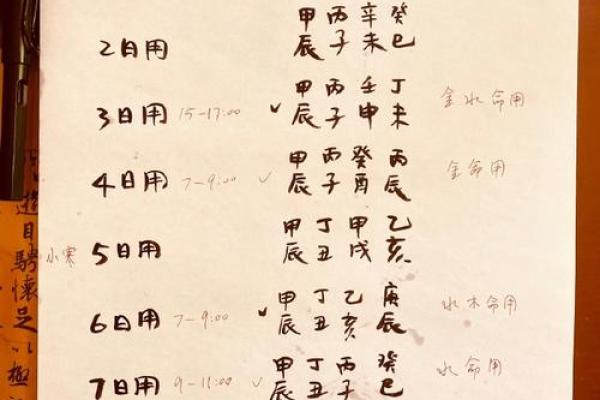 甲丙辛癸
2日用 辰子未巳
甲丙壬丁
3日用 15-17:00 ✓ 辰子申未 金水命用
甲丙癸丙
4日用 7-9:00 ✓ 辰子酉辰 金命用
甲丁甲乙
小寒 5日用 辰丑戌亥
甲丁乙庚
6日用 7-9:00 ✓ 辰丑亥辰 水木命用
甲丁丙癸
7日用 9-11:00 ✓ 辰丑子巳 水命用
遊目騁懷足以極